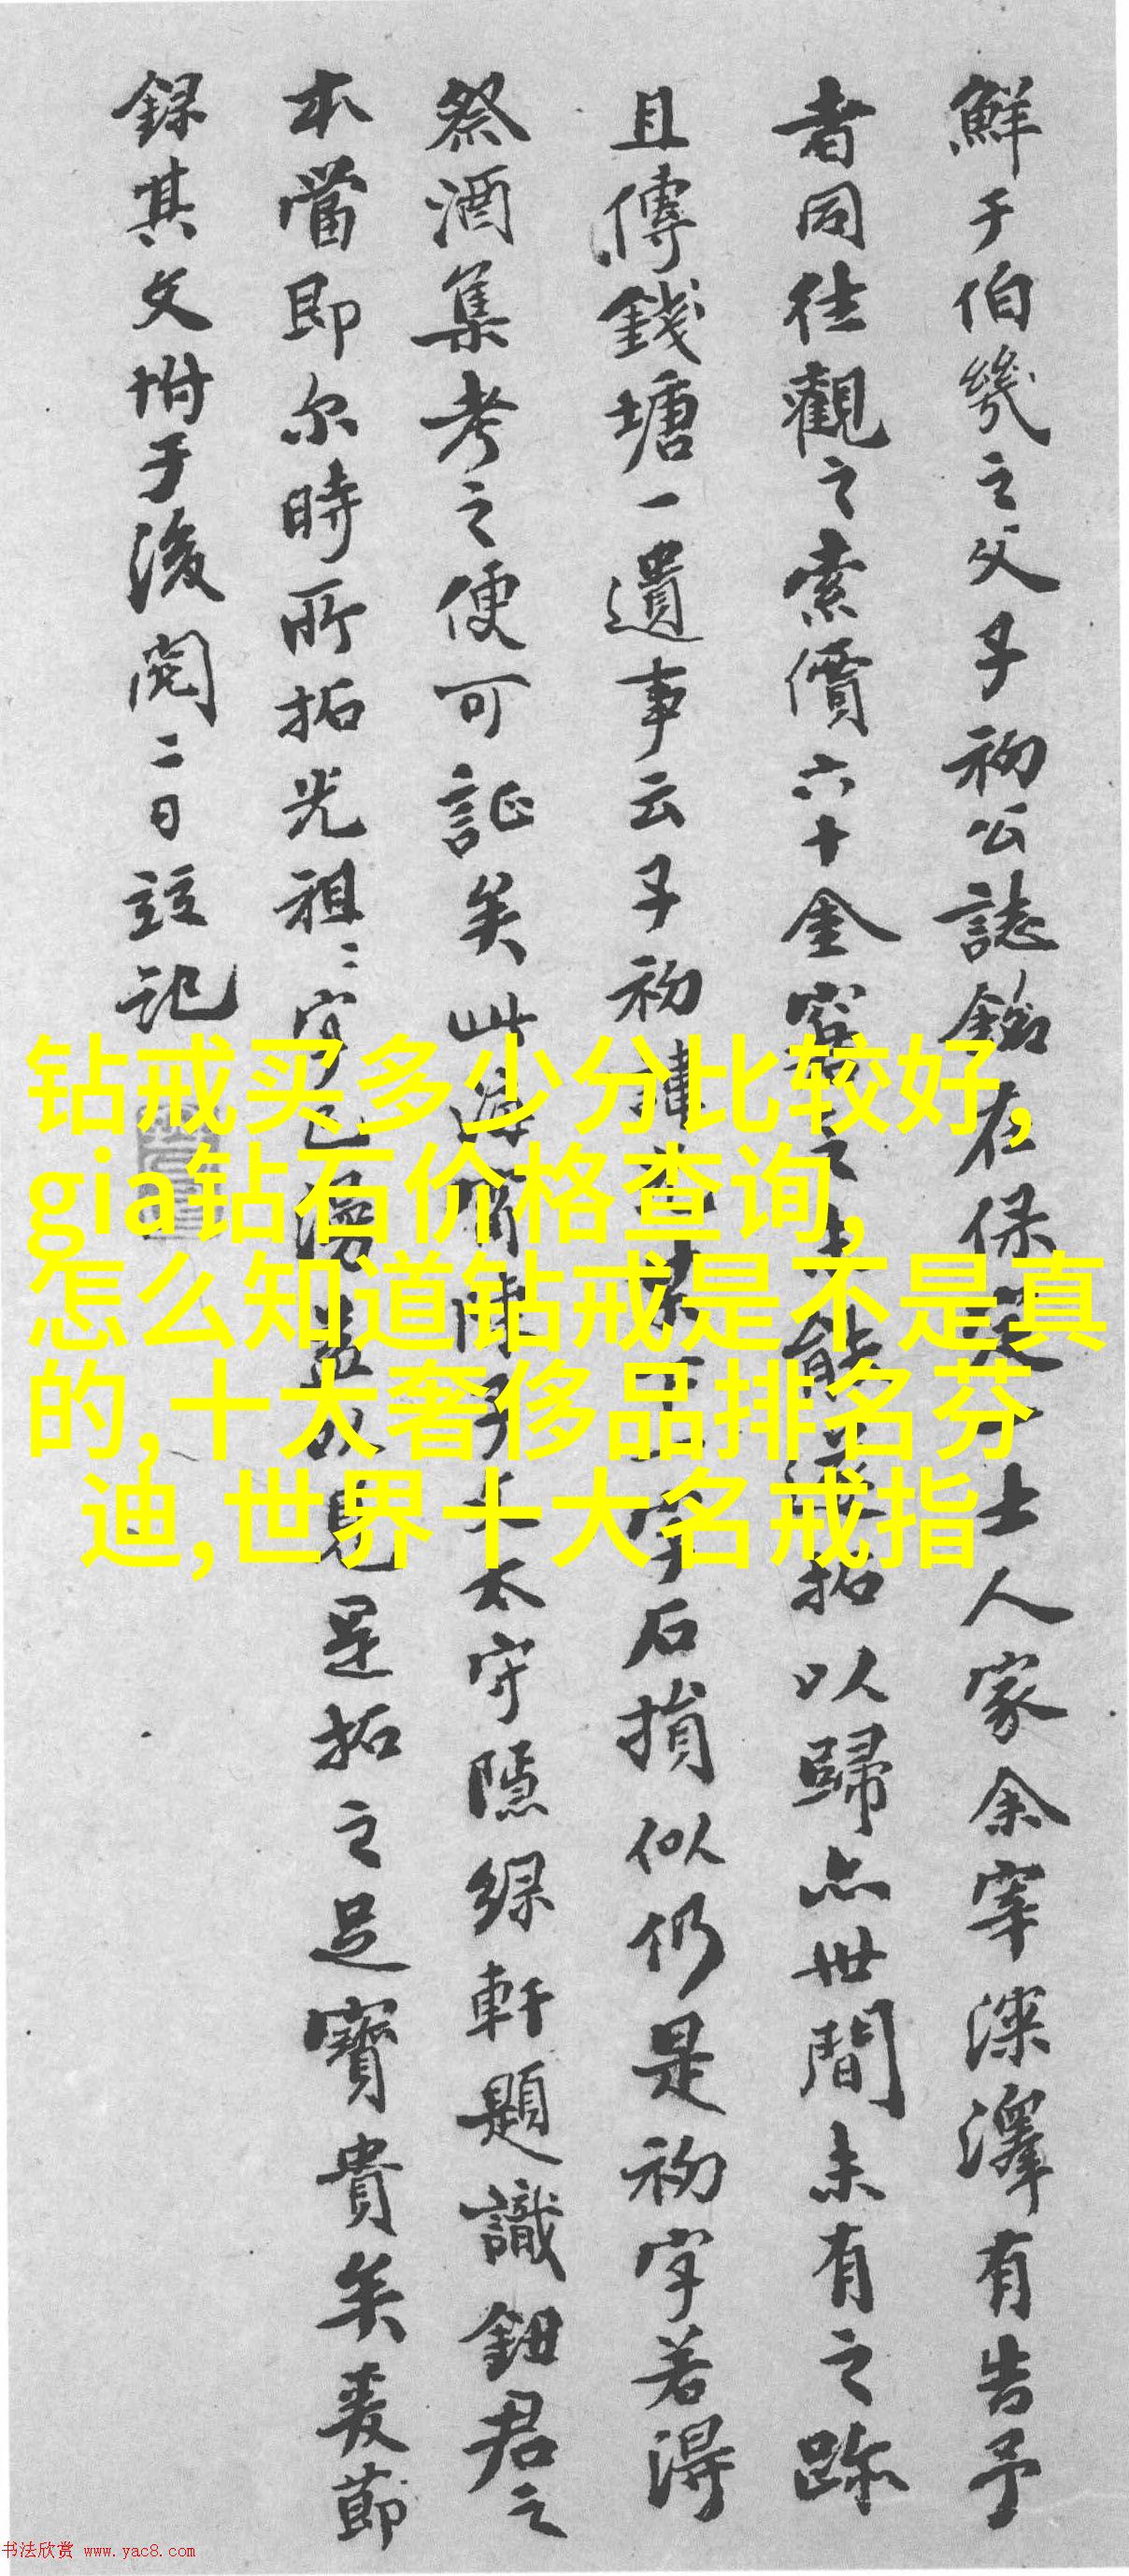 鮮于伯幾之父子初公誌銘在保士人家余宰深澤有告予
者同往觀之索價六十金之能拓以歸亦世間未有之跡
且傳錢塘一遺事云子初諱字石損似仍是初字若得
祭酒集考之便可証矣此太守隱綠軒題識鈕君之
本當即尔時所拓光祖二字已漫見是拓之足寶貴矣爰節
錄其文坿于後閏二日竝記
钻戒买多少分比较好,
gia钻石价格查询,
怎么知道钻戒是不是真
的,十大奢侈品排名芬
迪,世界十大名戒指
书法欣赏 www.yac8.com